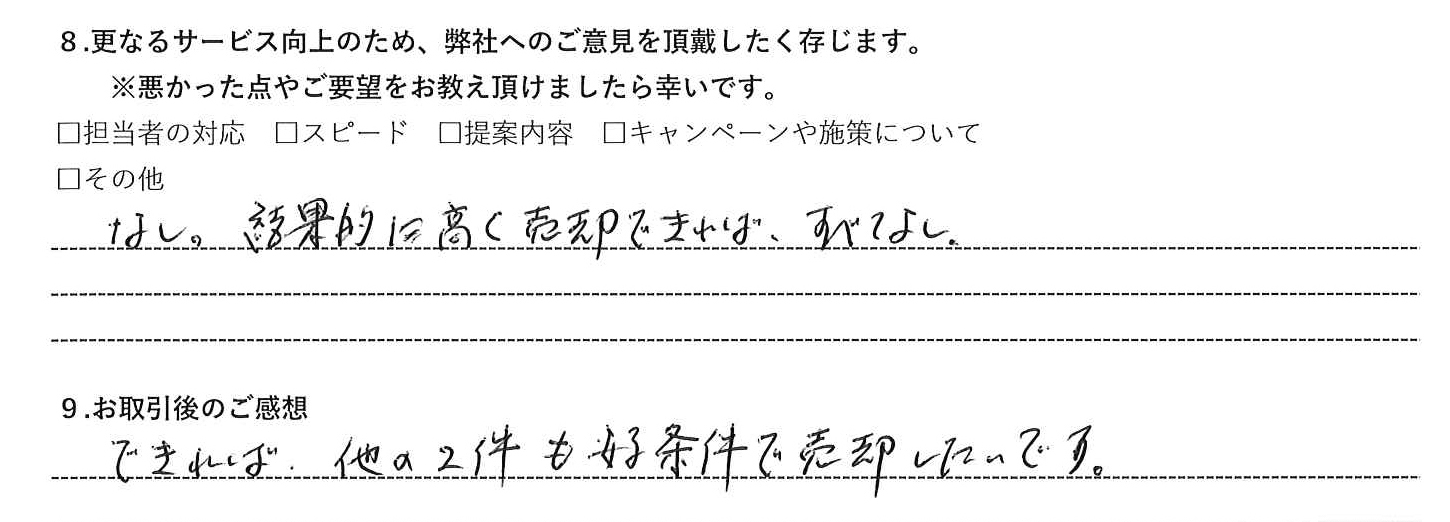 ８.更なるサービス向上のため、弊社へのご意見を頂戴したく存じます。
※悪かった点やご要望をお教え頂けましたら幸いです。
□担当者の対応　□スピード　□提案内容　□キャンペーンや施策について
□その他
なし。結果的に高く売却できれば、すべてよし。
９.お取引後のご感想
できれば、他の2件も好条件で売却したいです。